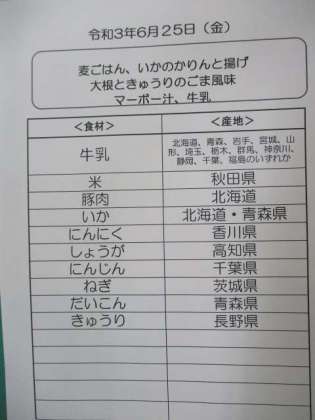 令和3年6月25日（金）
麦ごはん、いかのかりんと揚げ
大根ときゅうりのごま風味
マーボー汁、牛乳
＜食材＞ ＜産地＞
牛乳 北海道、青森、岩手、宮城、山
形、埼玉、栃木、群馬、神奈川、
静岡、千葉、福島のいずれか
米 秋田県
豚肉 北海道
いか 北海道・青森県
にんにく 香川県
しょうが 高知県
にんじん 千葉県
ねぎ 茨城県
だいこん 青森県
きゅうり 長野県